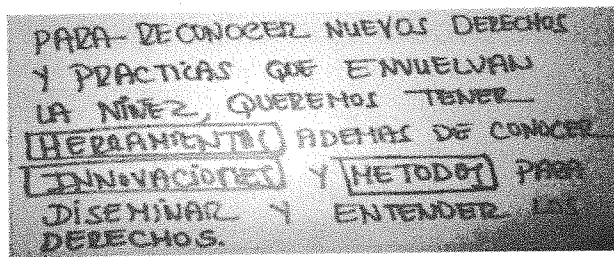 PARA RECONOCER NUEVOS DERECHOS
Y PRACTICAS QUE ENVUELVAN
LA NIÑEZ, QUEREMOS TENER
HERRAMIENTAS ADEMAS DE CONOCER
INNOVACIONES Y METODOS PARA
DISEMINAR Y ENTENDER LOS
DERECHOS.